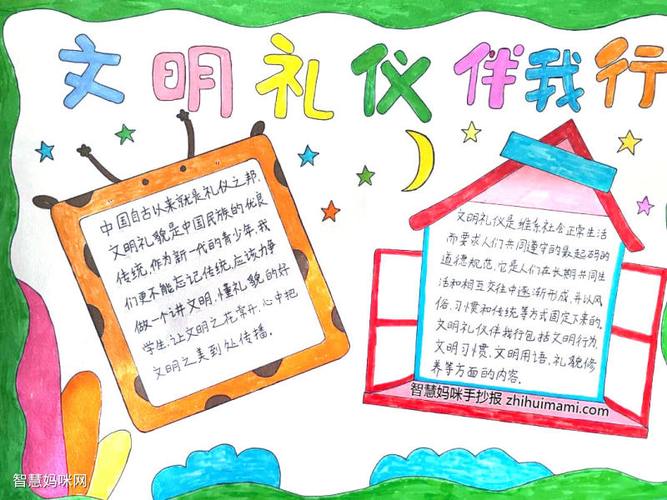 文明礼仪伴我行
中国自古以来就是礼仪之邦.
文明礼貌是中国民族的优良
传统,作为新一代的青少年,我
们更不能忘记传统,应该力争
做一个讲文明、懂礼貌的好
学生.让文明之花常开.心中把
文明之美到处传播.
文明礼仪是维系社会正常生活
而要求人们共同遵守的最起码的
道德规范,它是人们在长期共同生
活和相互交往中逐渐形成,并以风
俗、习惯和传统等方式固定下来的.
文明礼仪伴我行包括文明行为.
文明习惯.文明用语.礼貌修
养等方面的内容.
智慧妈咪手抄报 zhihuimami.com
智慧妈咪网